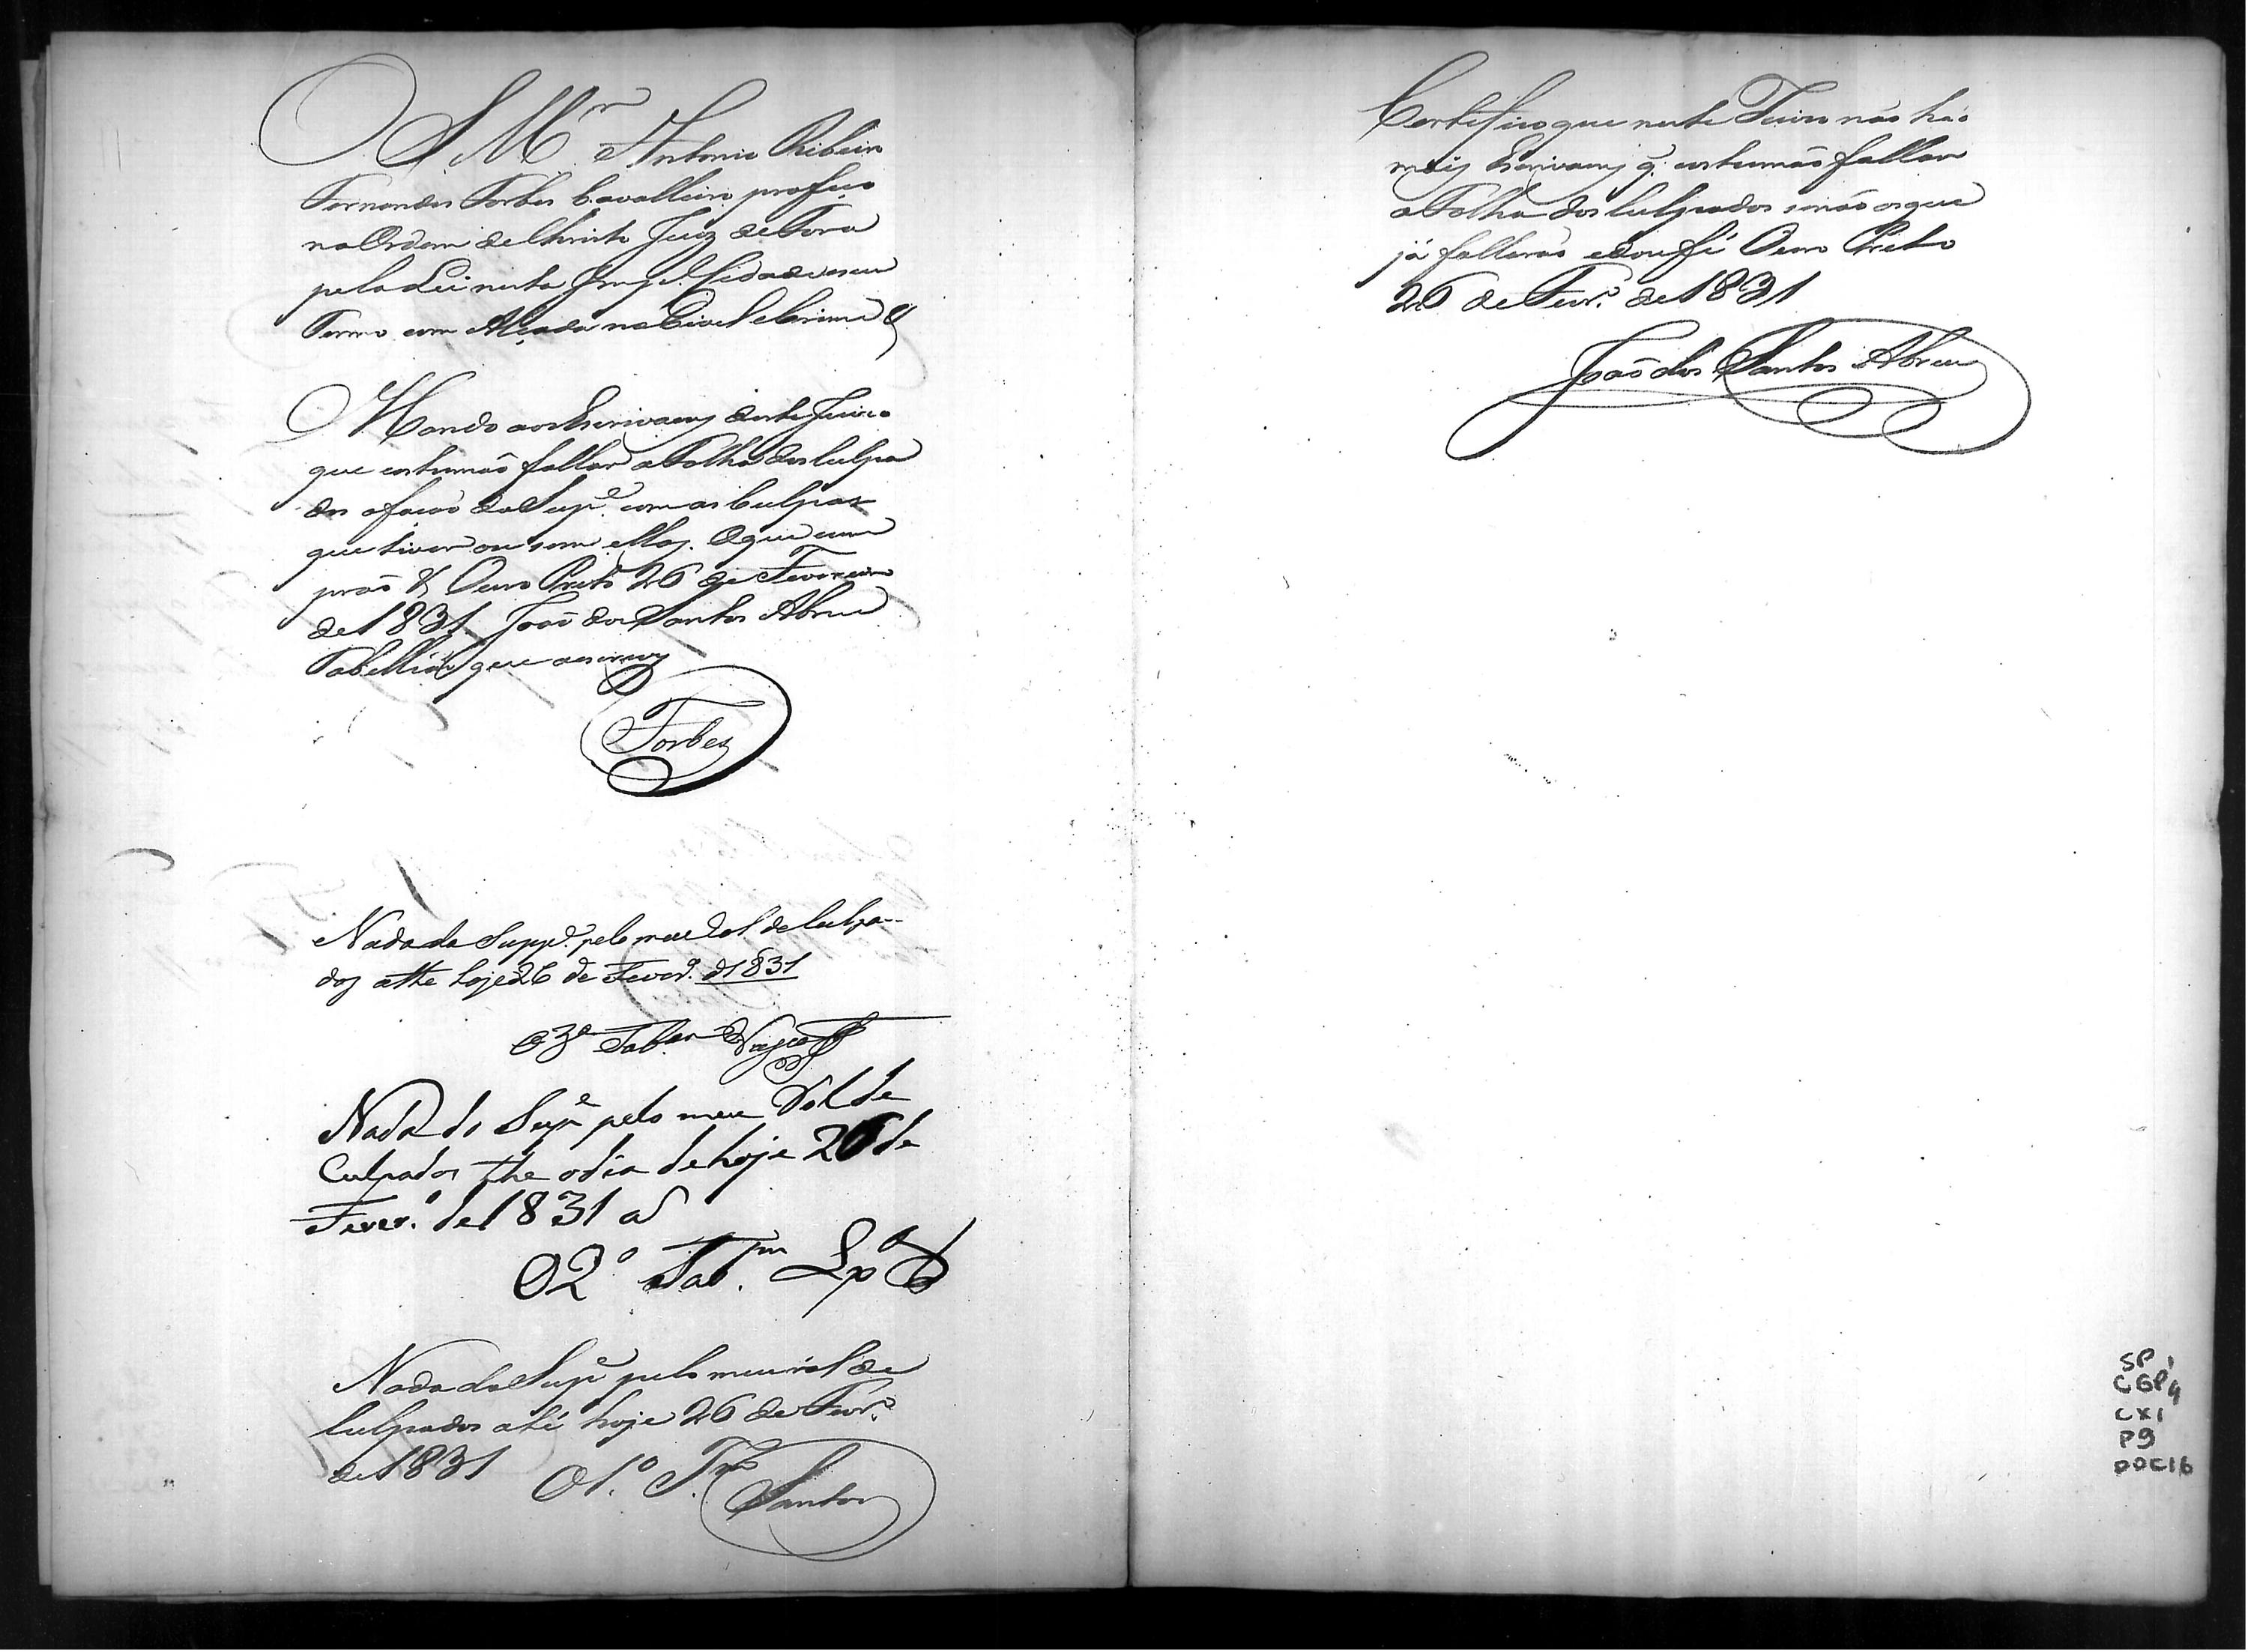 O D.r Antonio Ribeiro
Fernandes Forbes Cavalleiro profeço
na Ordem de Christo Juiz de Fora
pela Lei nesta Imp.l Cidade e seu
Termo com Alçada no Civel e Crime &
Mando aos Escrivaens deste Juizo
que costumão fallar a Folha dos Culpa
dos o facão do Sup.e com as Culpas
que tiver ou sem ellas. O que cum
prão & Ouro Preto 26 de Fevereiro
de 1831. João dos Santos Abreu
Tabellião que a escrevy
Forbes
Nada do Supp.e pelo meu Rol de Culpa--
dos athe hoje 26 de Fever.o d 1831
O 3.o Tab.am
Nada do Sup.e pelo meu Rol de
Culpados the o dia de hoje 26 de
Fever.o de 1831 a
O 2.o Tab.am
Nada do Sup.e pelo meu rol de
Culpados até hoje 26 de Fevr.o
de 1831 O 1.o T.am Santos
Certifico que neste Juizo não há
mais Escrivaens q. costumão fallar
a Folha dos Culpados senão os que
já fallarão e dou fé Ouro Preto
26 de Fevr.o de 1831
João dos Santos Abreu
SP
CGP4
CX1
P9
DOC16